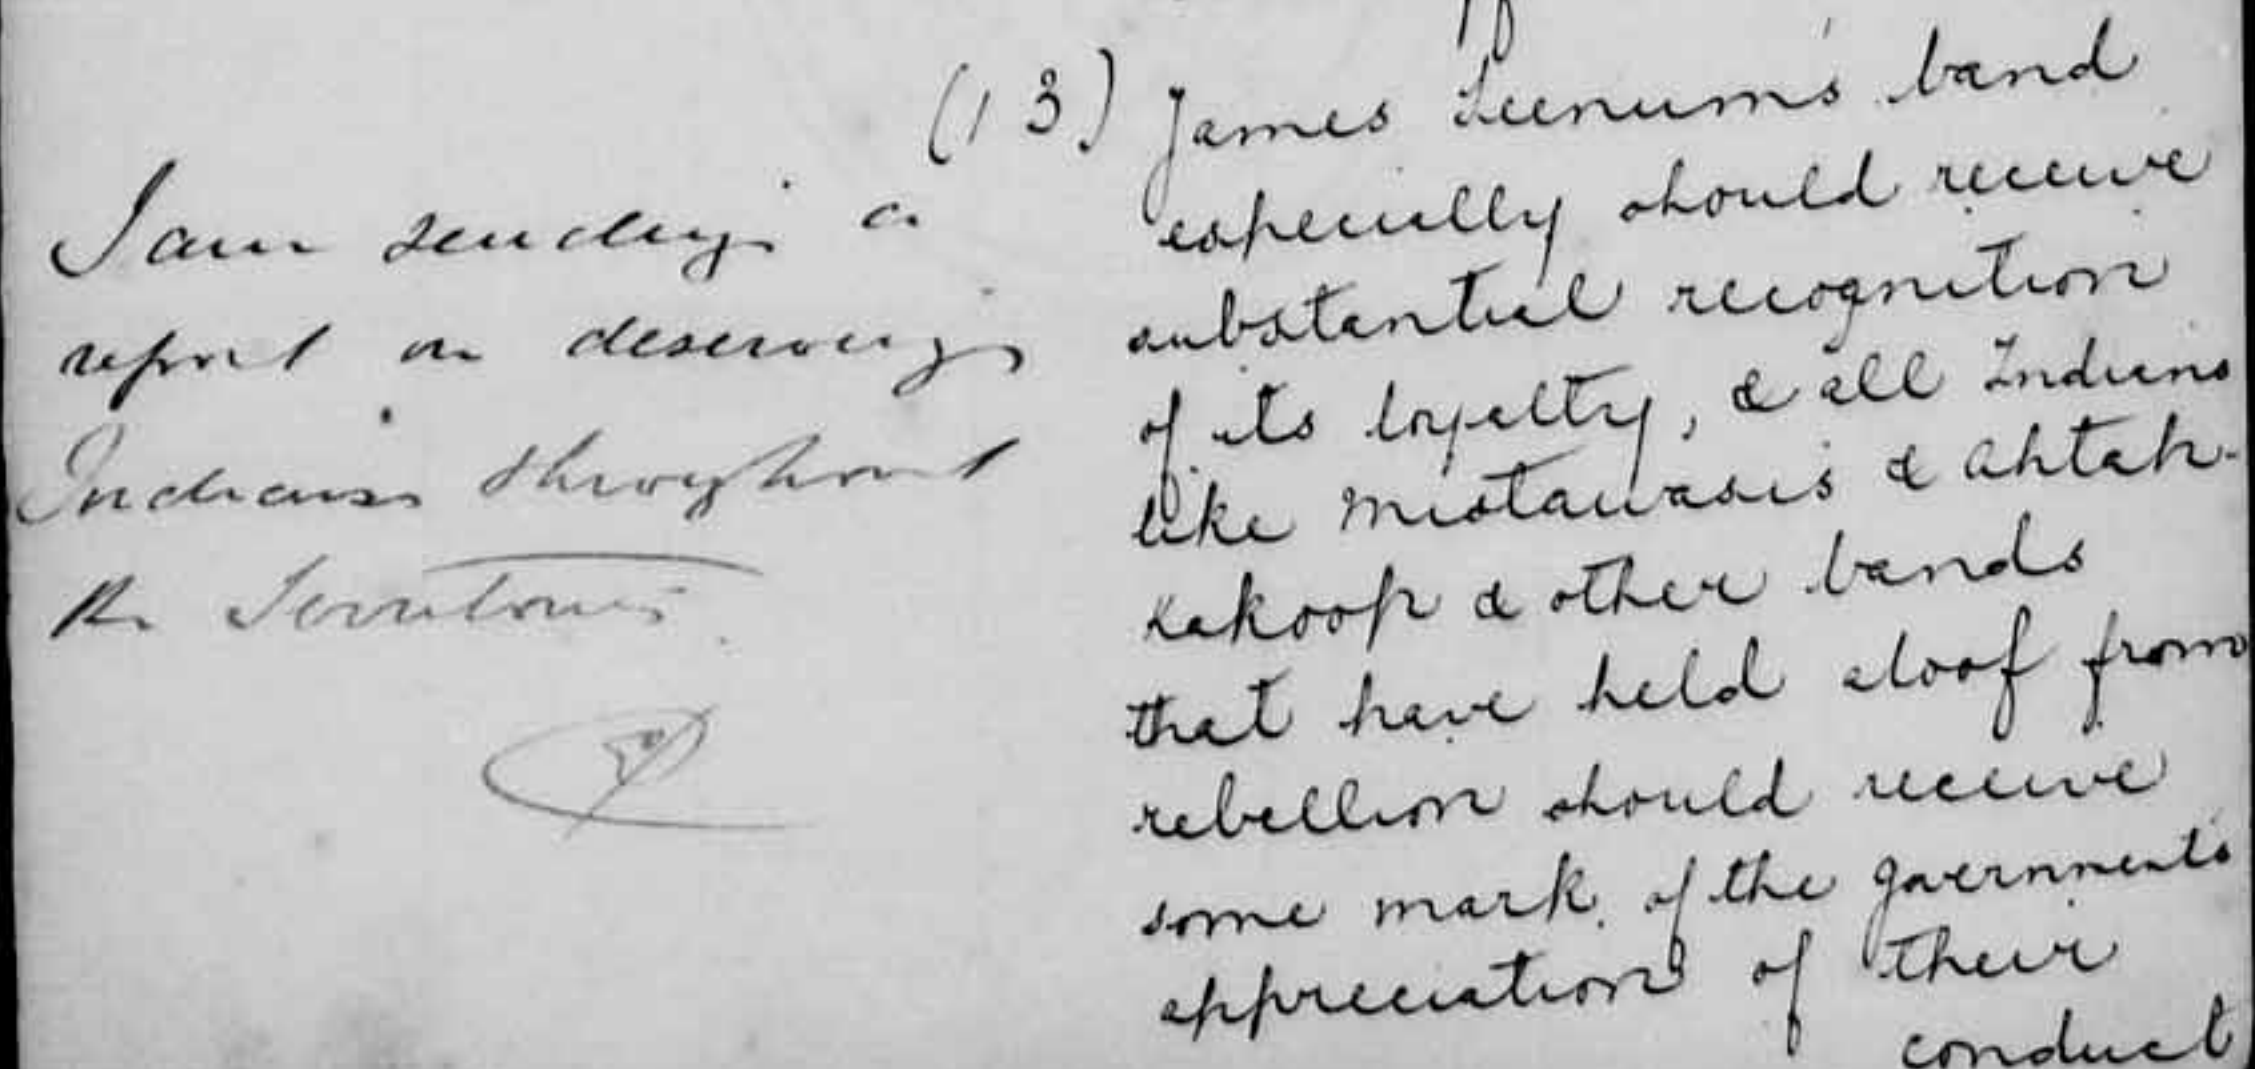 I am sending a
report on deserving
Indians throughout
the Territories
(13) James Seenum's band
especially should receive
substantial recognition
of its loyalty, & all Indians
like Mistawasis & Ahtah-
kakoop & other bands
that have held aloof from
rebellion should receive
some mark of the governments
appreciation of their
conduct